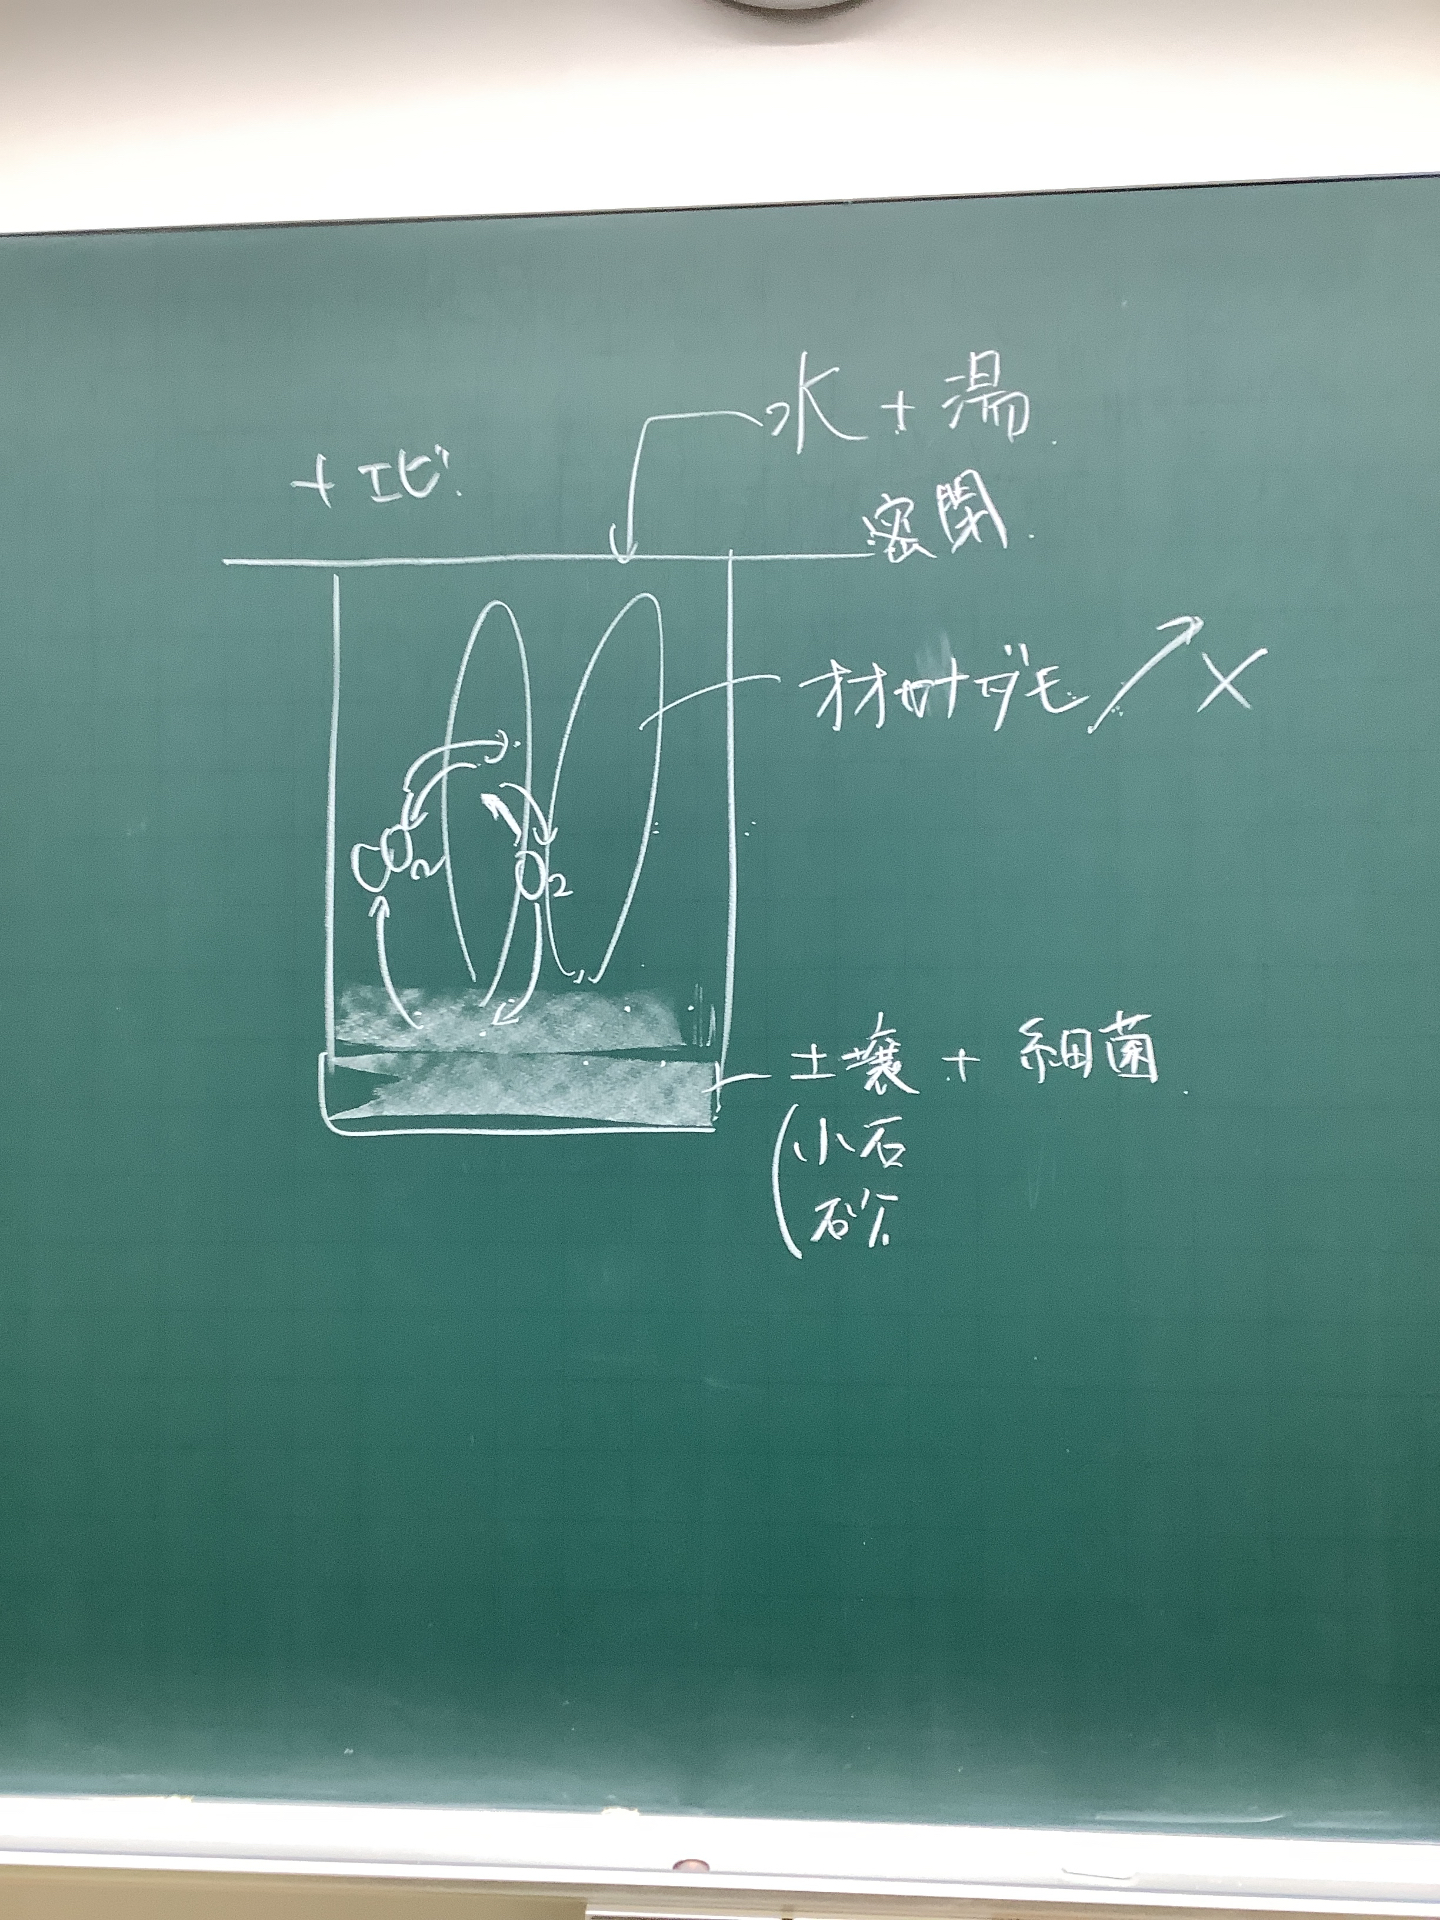 水 + 湯
+ エビ
密閉
オオカナダモ ↗ X
CO₂
O₂
土壌 + 細菌
(小石
砂